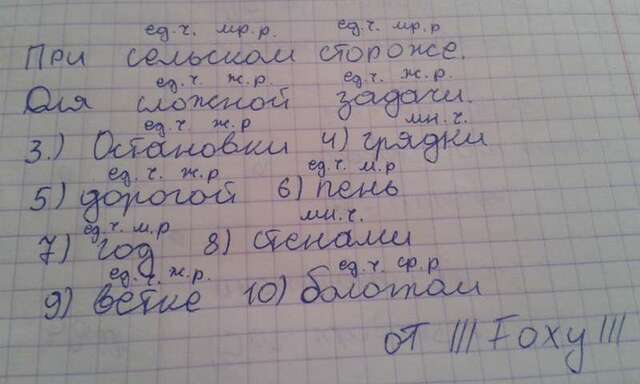 ед.ч. мр.р. ед.ч. мр.р
При сельском стороже.
ед.ч. ж.р. ед.ч. ж.р.
Для сложной задачи.
ед.ч ж.р мн.ч.
3.) Остановки 4) грядки
ед.ч. ж.р ед.ч. м.р
5) дорогой 6) пень
ед.ч. м.р мн.ч.
7) год 8) стенами
ед.ч. ж.р. ед.ч. ср.р
9) ветке 10) болотом
от III Foxy III